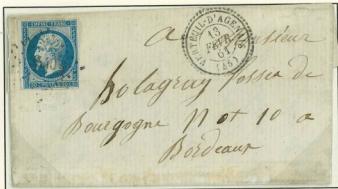 EMPIRE FRANC.
VERTEUIL-D'AGENAIS
13
FEVR
61
(45)
a Monsieur
Bolagray fosses de
Bourgogne N ot 10 a
Bordeaux